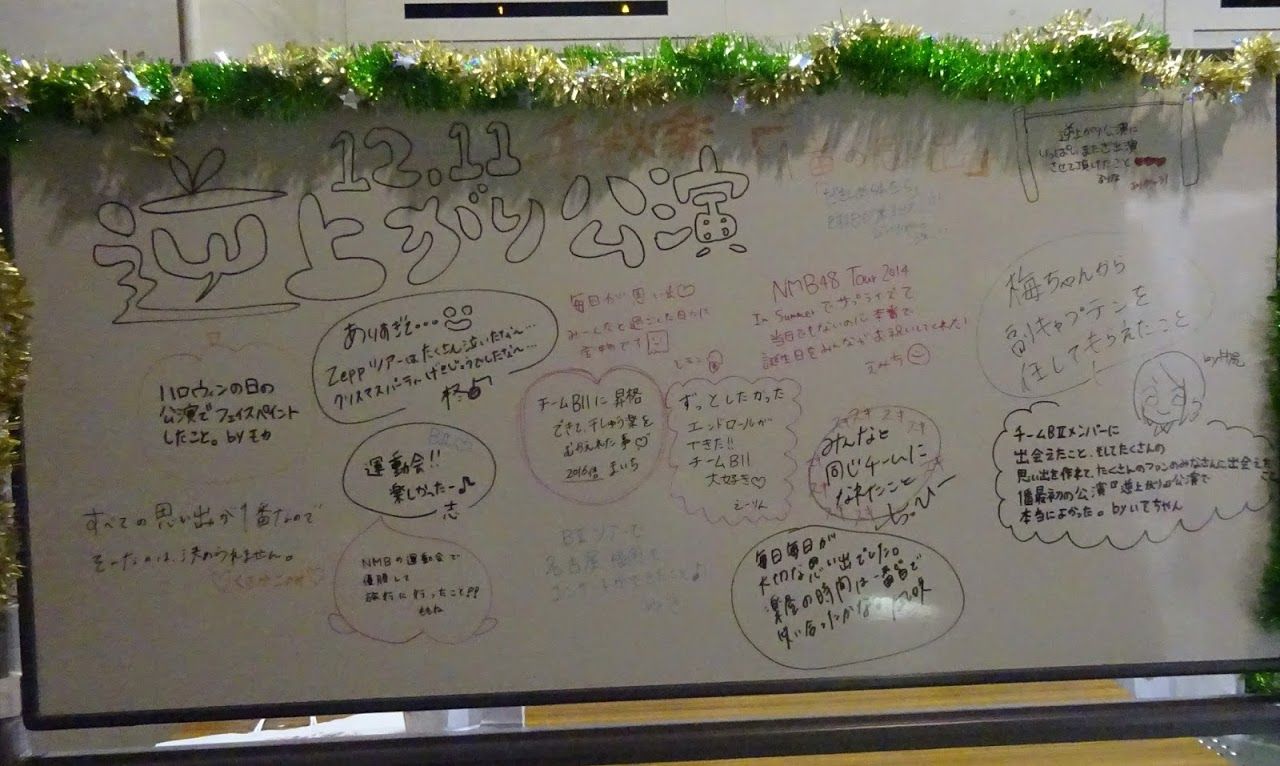 12.11
千秋楽「一番の思い出」
逆上がり公演
逆上がり公演に
いっぱいまた出演
させて頂けたこと
ありすぎて・・・
Zeppツアーはたくさん泣いたな〜・・・
クリスマスパーティげきじょうでしたな〜・・・
柊
毎日が思い出♡
みーんなと過ごした日々に
宝物です
NMB48 Tour 2014
In Summerでサプライズで
当日でもないのに本番で
誕生日をみんながお祝いしてくれた!
えみち
梅ちゃんから
副キャプテンを
任してもらえたこと
by村尾
ハロウィンの日の
公演でフェイスペイント
したこと。byモカ
運動会!!
楽しかったー♪
志
チームBIIに昇格
できて、千しゅう楽を
むかえれた事♡
2016.12 まいち
ずっとしたかった
エンドロールが
できた!!
チームBII
大好き♡
えーりん
みんなと
同じチームに
なれたこと
ちっひー
チームBⅡメンバーに
出会えたこと、そしてたくさんの
思い出を作れて、たくさんのファンのみなさんに出会えた
1番最初の公演『逆上がり』公演で
本当によかった。byいてちゃん
すべての思い出が1番なので
そーたのは、決められません。
くさかこのみ
NMBの運動会で
優勝して
旅行に行ったこと!?
ももね
BⅡツアーで
名古屋 盛岡で
コンサートができたこと♪
毎日毎日が
大切な思い出でした。
楽屋の時間は一番で
笑い合ったかな。